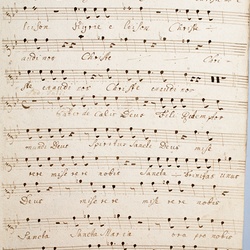 leison Kyrie e leison Christe
audi nos Christe Chri-
ste exaudi nos Christe exaudi nos
Pater de caelis Deus Fili Redemptor
mundi Deus Spiritus Sancte Deus mise
rere mise rere nobis Sancta Trinitas unus
Deus mise rere mise rere nobis
Sancta Sancta Maria ora pro nobis